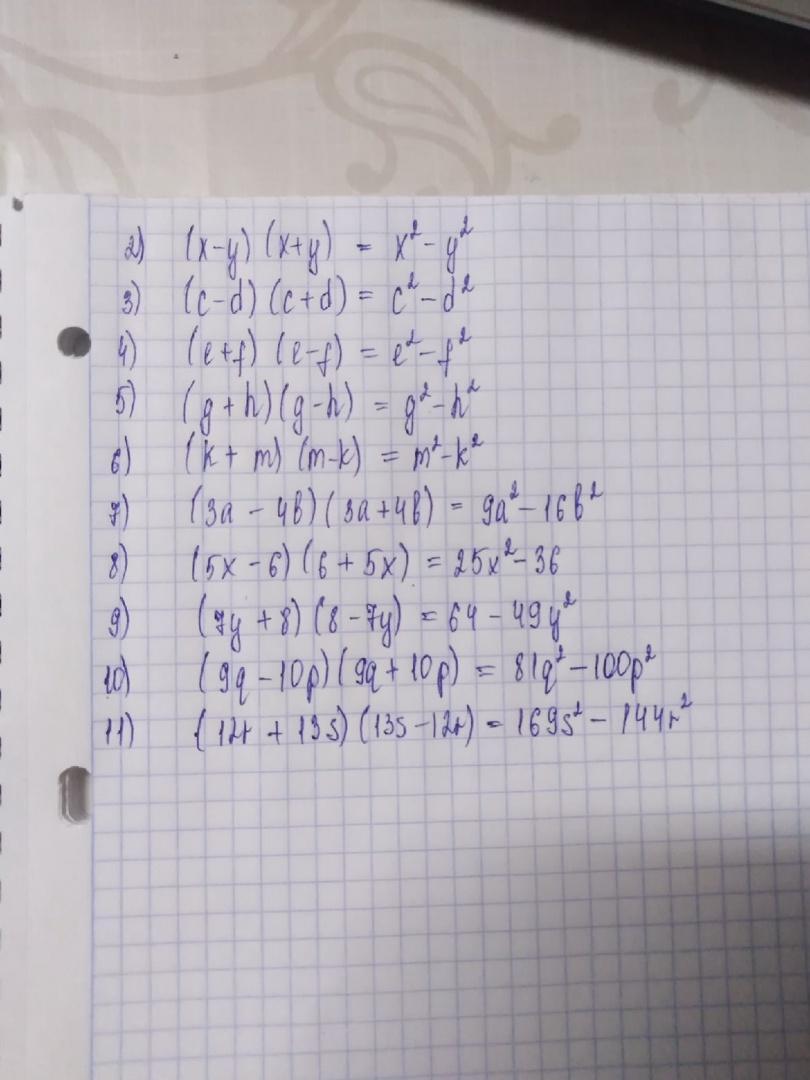 2) (x-y) (x+y) = x² - y²
3) (c-d) (c+d) = c² - d²
4) (e+f) (e-f) = e² - f²
5) (g+h) (g-h) = g² - h²
6) (k+m) (m-k) = m² - k²
7) (3a - 4b) (3a+4b) = 9a² - 16b²
8) (5x - 6) (6 + 5x) = 25x² - 36
9) (7y + 8) (8 - 7y) = 64 - 49y²
10) (9q - 10p) (9q + 10p) = 81q² - 100p²
11) (12r + 13s) (13s - 12r) = 169s² - 144r²